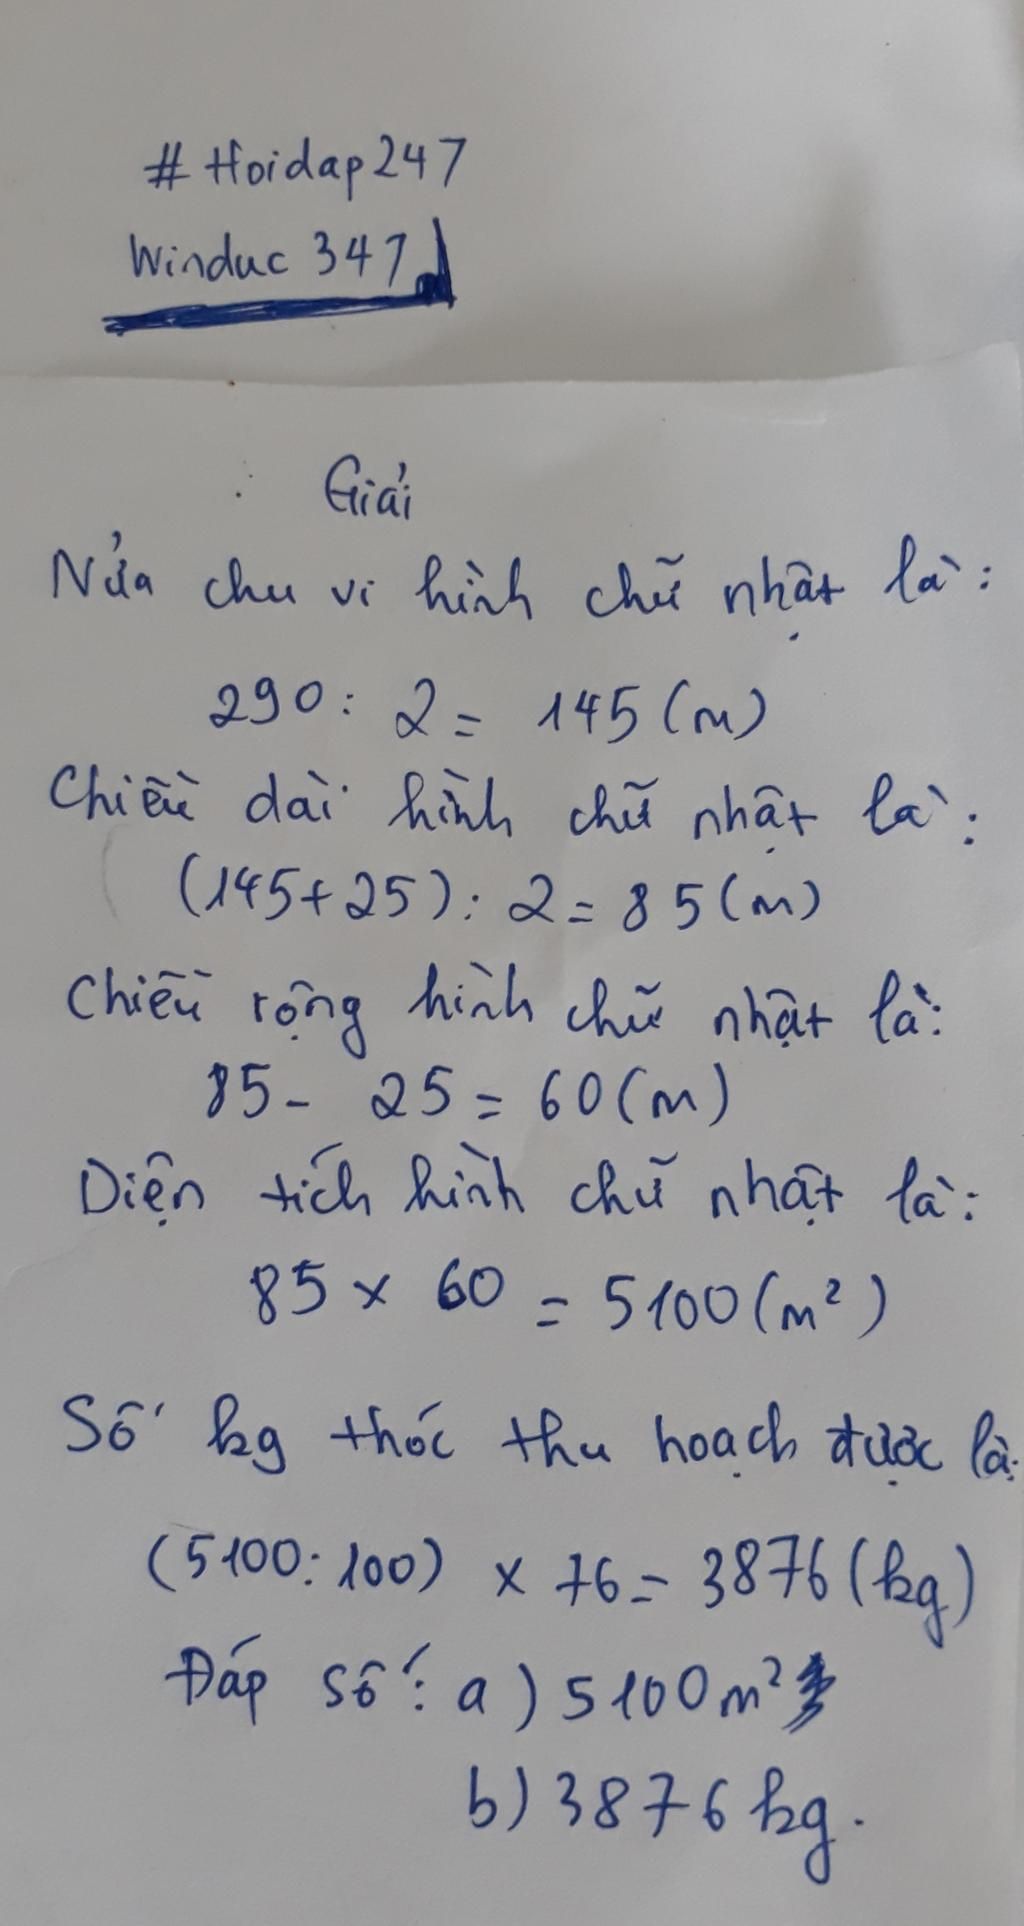 # Hoidap247
Winduc 347
Giải
Nửa chu vi hình chữ nhật là:
290: 2 = 145 (m)
Chiều dài hình chữ nhật là:
(145+25): 2 = 85 (m)
Chiều rộng hình chữ nhật là:
85 - 25 = 60 (m)
Diện tích hình chữ nhật là:
85 x 60 = 5100 (m²)
Số kg thóc thu hoạch được là:
(5100: 100) x 76 = 3876 (kg)
Đáp số: a) 5100m²
b) 3876 kg.